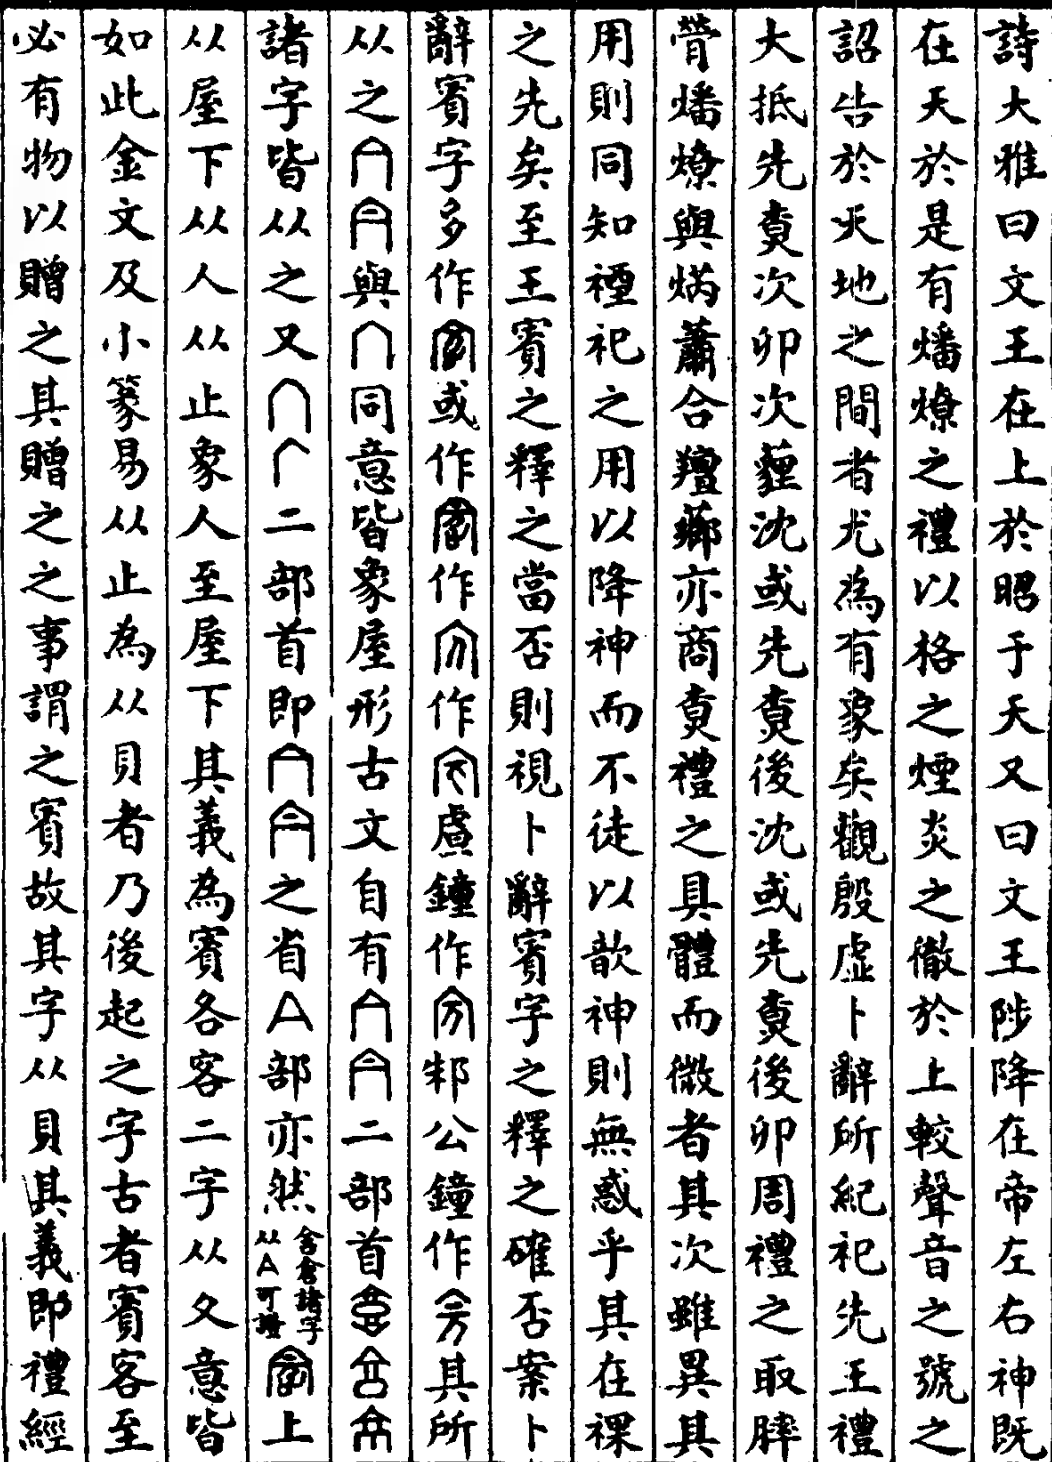 詩大雅曰文王在上於昭于天又曰文王陟降在帝左右神既
在天於是有燔燎之禮以格之煙炎之徹於上較聲音之號之
詔告於天地之間者尤為有象矣觀殷虛卜辭所紀祀先王禮
大抵先尞次卯次薶沈或先尞後沈或先尞後卯周禮之取膟
膋燔燎與焫蕭合羶薌亦商尞禮之具體而微者其次雖異其
用則同知禋祀之用以降神而不徒以歆神則無惑乎其在祼
之先矣至王賓之釋之當否則視卜辭賓字之釋之確否案卜
辭賓字多作或作作作虘鐘作邾公鐘作其所
从之與同意皆象屋形古文自有二部首
諸字皆从之又二部首即之省亼部亦然舍倉諸字从亼可證上
从屋下从人从止象人至屋下其義為賓各客二字从夂意皆
如此金文及小篆易从止為从貝者乃後起之字古者賓客至
必有物以贈之其贈之之事謂之賓故其字从貝其義即禮經